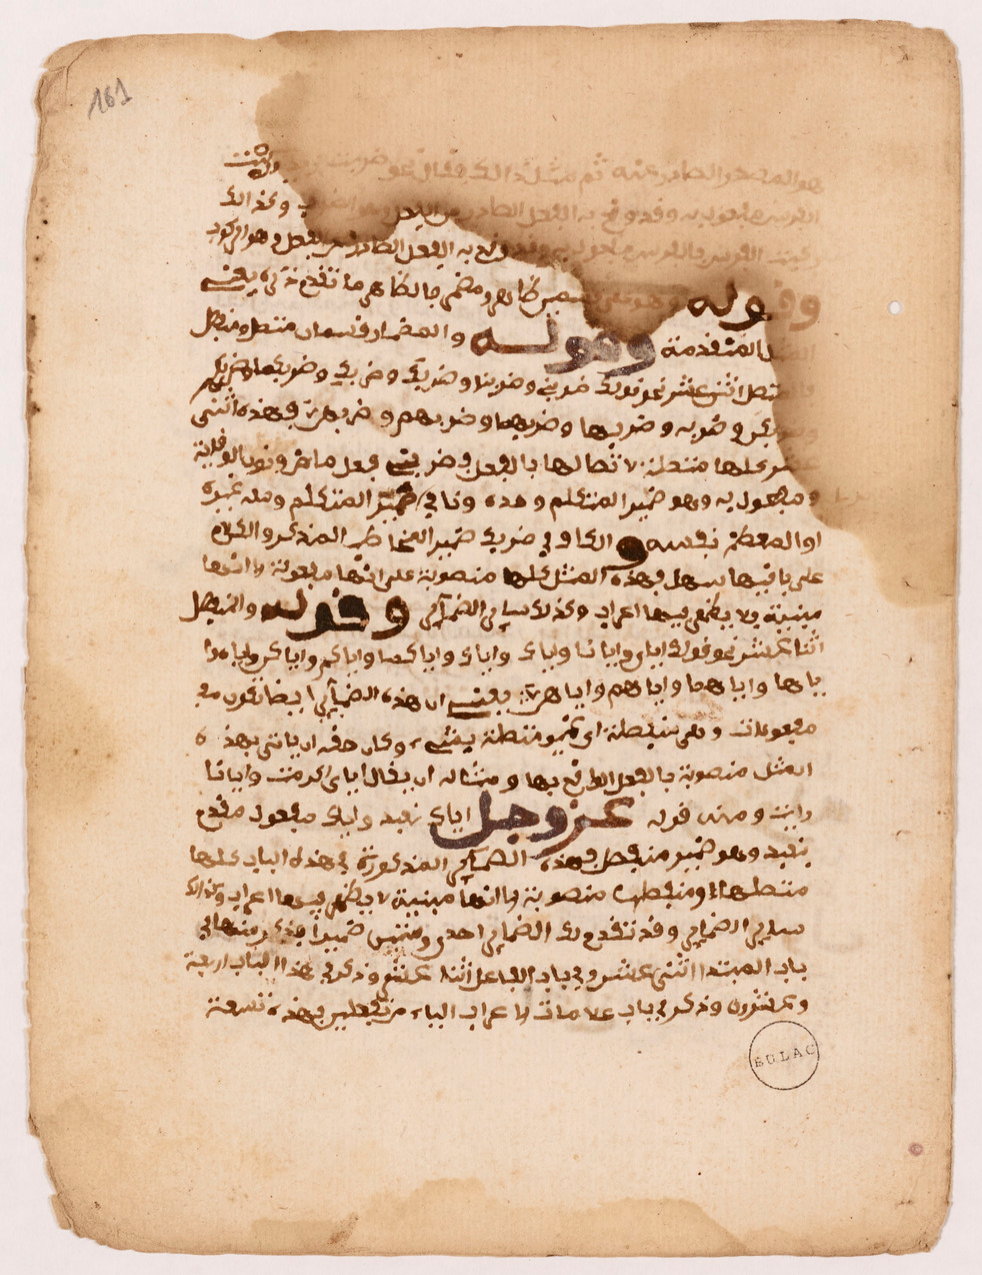 161
هو المصدر الصادر عنه ثم مثل ذالك فقال نحو ضربت زيدا وركبت
الفرس مفعول به وقد وقع به الفعل الصادر من الفاعل وهو الضرب وكذالك
ركبت الفرس فالفرس مفعول به وقد وقع به الفعل الصادر من الفعل وهو الركوب
وقوله وهو على قسمين ظاهر ومضمر فالظاهر ما تقدم ذكره يعني
المثل المتقدمة وقوله والمضمر قسمان متصل ومنفصل
فالمتصل اثنى عشر نحو قولك ضربني وضربنا وضربك وضربك وضربكما وضربكم
وضربكن وضربه وضربها وضربهما وضربهم وضربهن فهذه اثنى
عشر كلها متصلة لاتصالها بالفعل فضربني فعل ماض ونون الوقاية
ومفعول به وهو ضمير المتكلم وحده ونا في ضمير المتكلم ومعه غيره
او المعظم نفسه و الكاف في ضربك ضمير المخاطب المذكر والكلام
على باقيها سهل فهذه المثل كلها منصوبة على انها مفعولة الا انها
مبنية ولا يظهر فيها اعراب وكذلك ساير الضماير وقوله والمنفصل
اثنا عشر نحو قولك اياي وايانا واياك واياك واياكما واياكم واياكن واياه وا
ياها واياهما واياهم واياهن يعني ان هذه الضماير ايضا تكون مـ
مفعولات وهي منفصلة اي غير متصلة بشيء وكان حقه ان ياتي بهذه
المثل منصوبة بالفعل الواقع بها ومثاله ان يقال اياي اكرمت وايانا
رايت ومنه قوله عز وجل اياك نعبد واياك مفعول مقدم
بنعبد وهو ضمير منفصل فهذه الضماير المذكورة في هذه الباب كلها
متصلها ومنفصلها منصوبة الا انها مبنية لا يظهر فيها اعراب وكذالك
ساير الضماير وقد تقدم لك الضماير احدى وستين ضميرا فذكر منها في
باب المبتدا اثنى عشر وفي باب الفاعل اثنا عشر وذكر في هذا الباب اربعة
وعشرون وذكر في باب علامات الاعراب الياء من تفعلين فهذه تسعة
BULAC